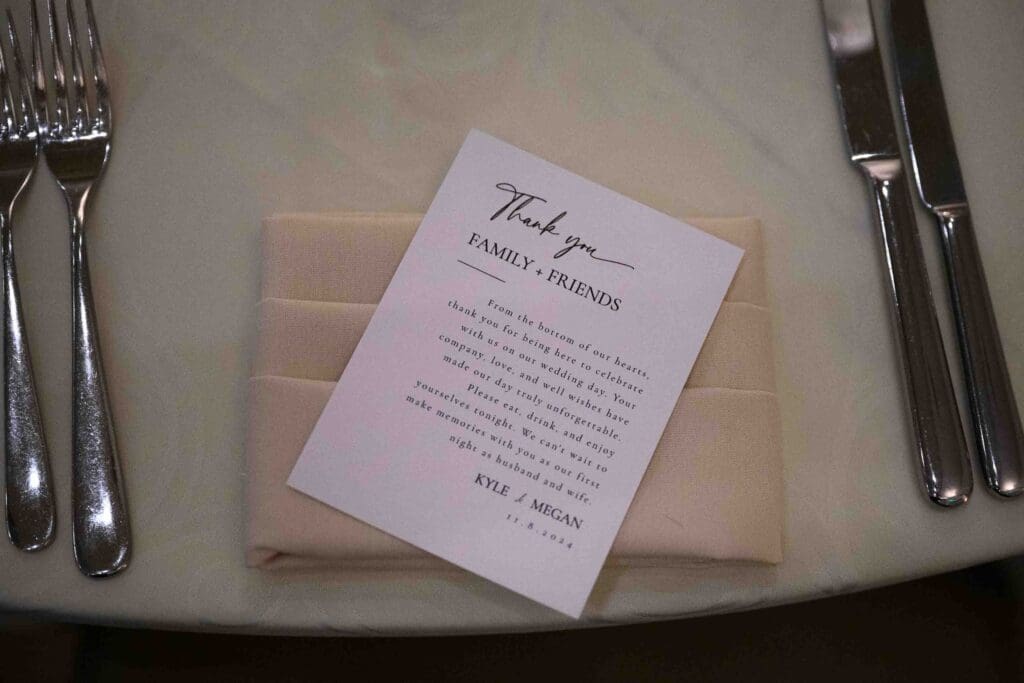 Thank you
FAMILY + FRIENDS
From the bottom of our hearts,
thank you for being here to celebrate
with us on our wedding day. Your
company, love, and well wishes have
made our day truly unforgettable.
Please eat, drink, and enjoy
yourselves tonight. We can't wait to
make memories with you as our first
night as husband and wife.
KYLE & MEGAN
11.8.2024